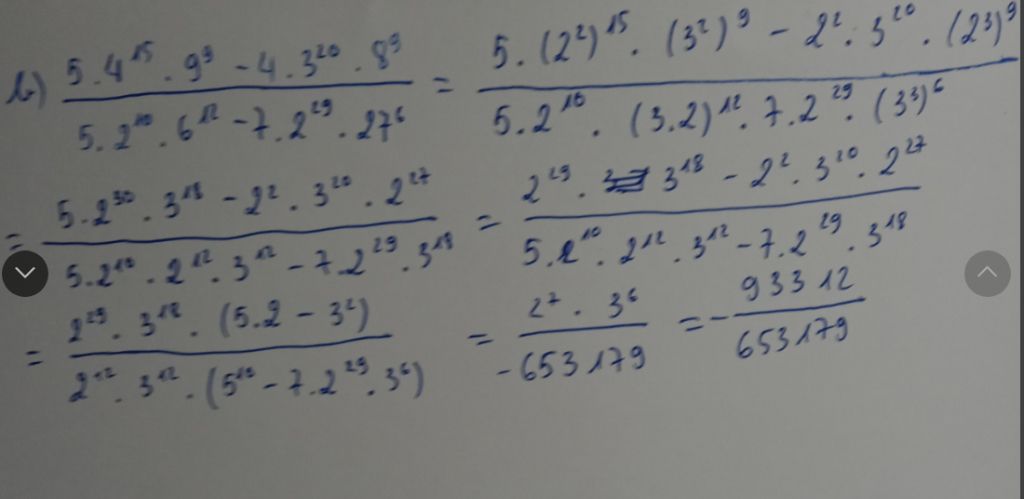 b) (5.4¹⁵.9⁹ - 4.3²⁰.8⁹)/(5.2¹⁰.6¹² - 7.2²⁹.27⁶) = (5.(2²)¹⁵.(3²)⁹ - 2².3²⁰.(2³)⁹)/(5.2¹⁰.(3.2)¹².7.2²⁹.(3³)⁶)
= (5.2³⁰.3¹⁸ - 2².3²⁰.2²⁷)/(5.2¹⁰.2¹².3¹² - 7.2²⁹.3¹⁸) = (2²⁹.3¹⁸ - 2².3²⁰.2²⁷)/(5.2¹⁰.2¹².3¹² - 7.2²⁹.3¹⁸)
= (2²⁹.3¹⁸.(5.2 - 3²))/(2¹².3¹².(5¹⁰ - 7.2²⁹.3⁶)) = (2⁷.3⁶)/(-653179) = -93312/653179